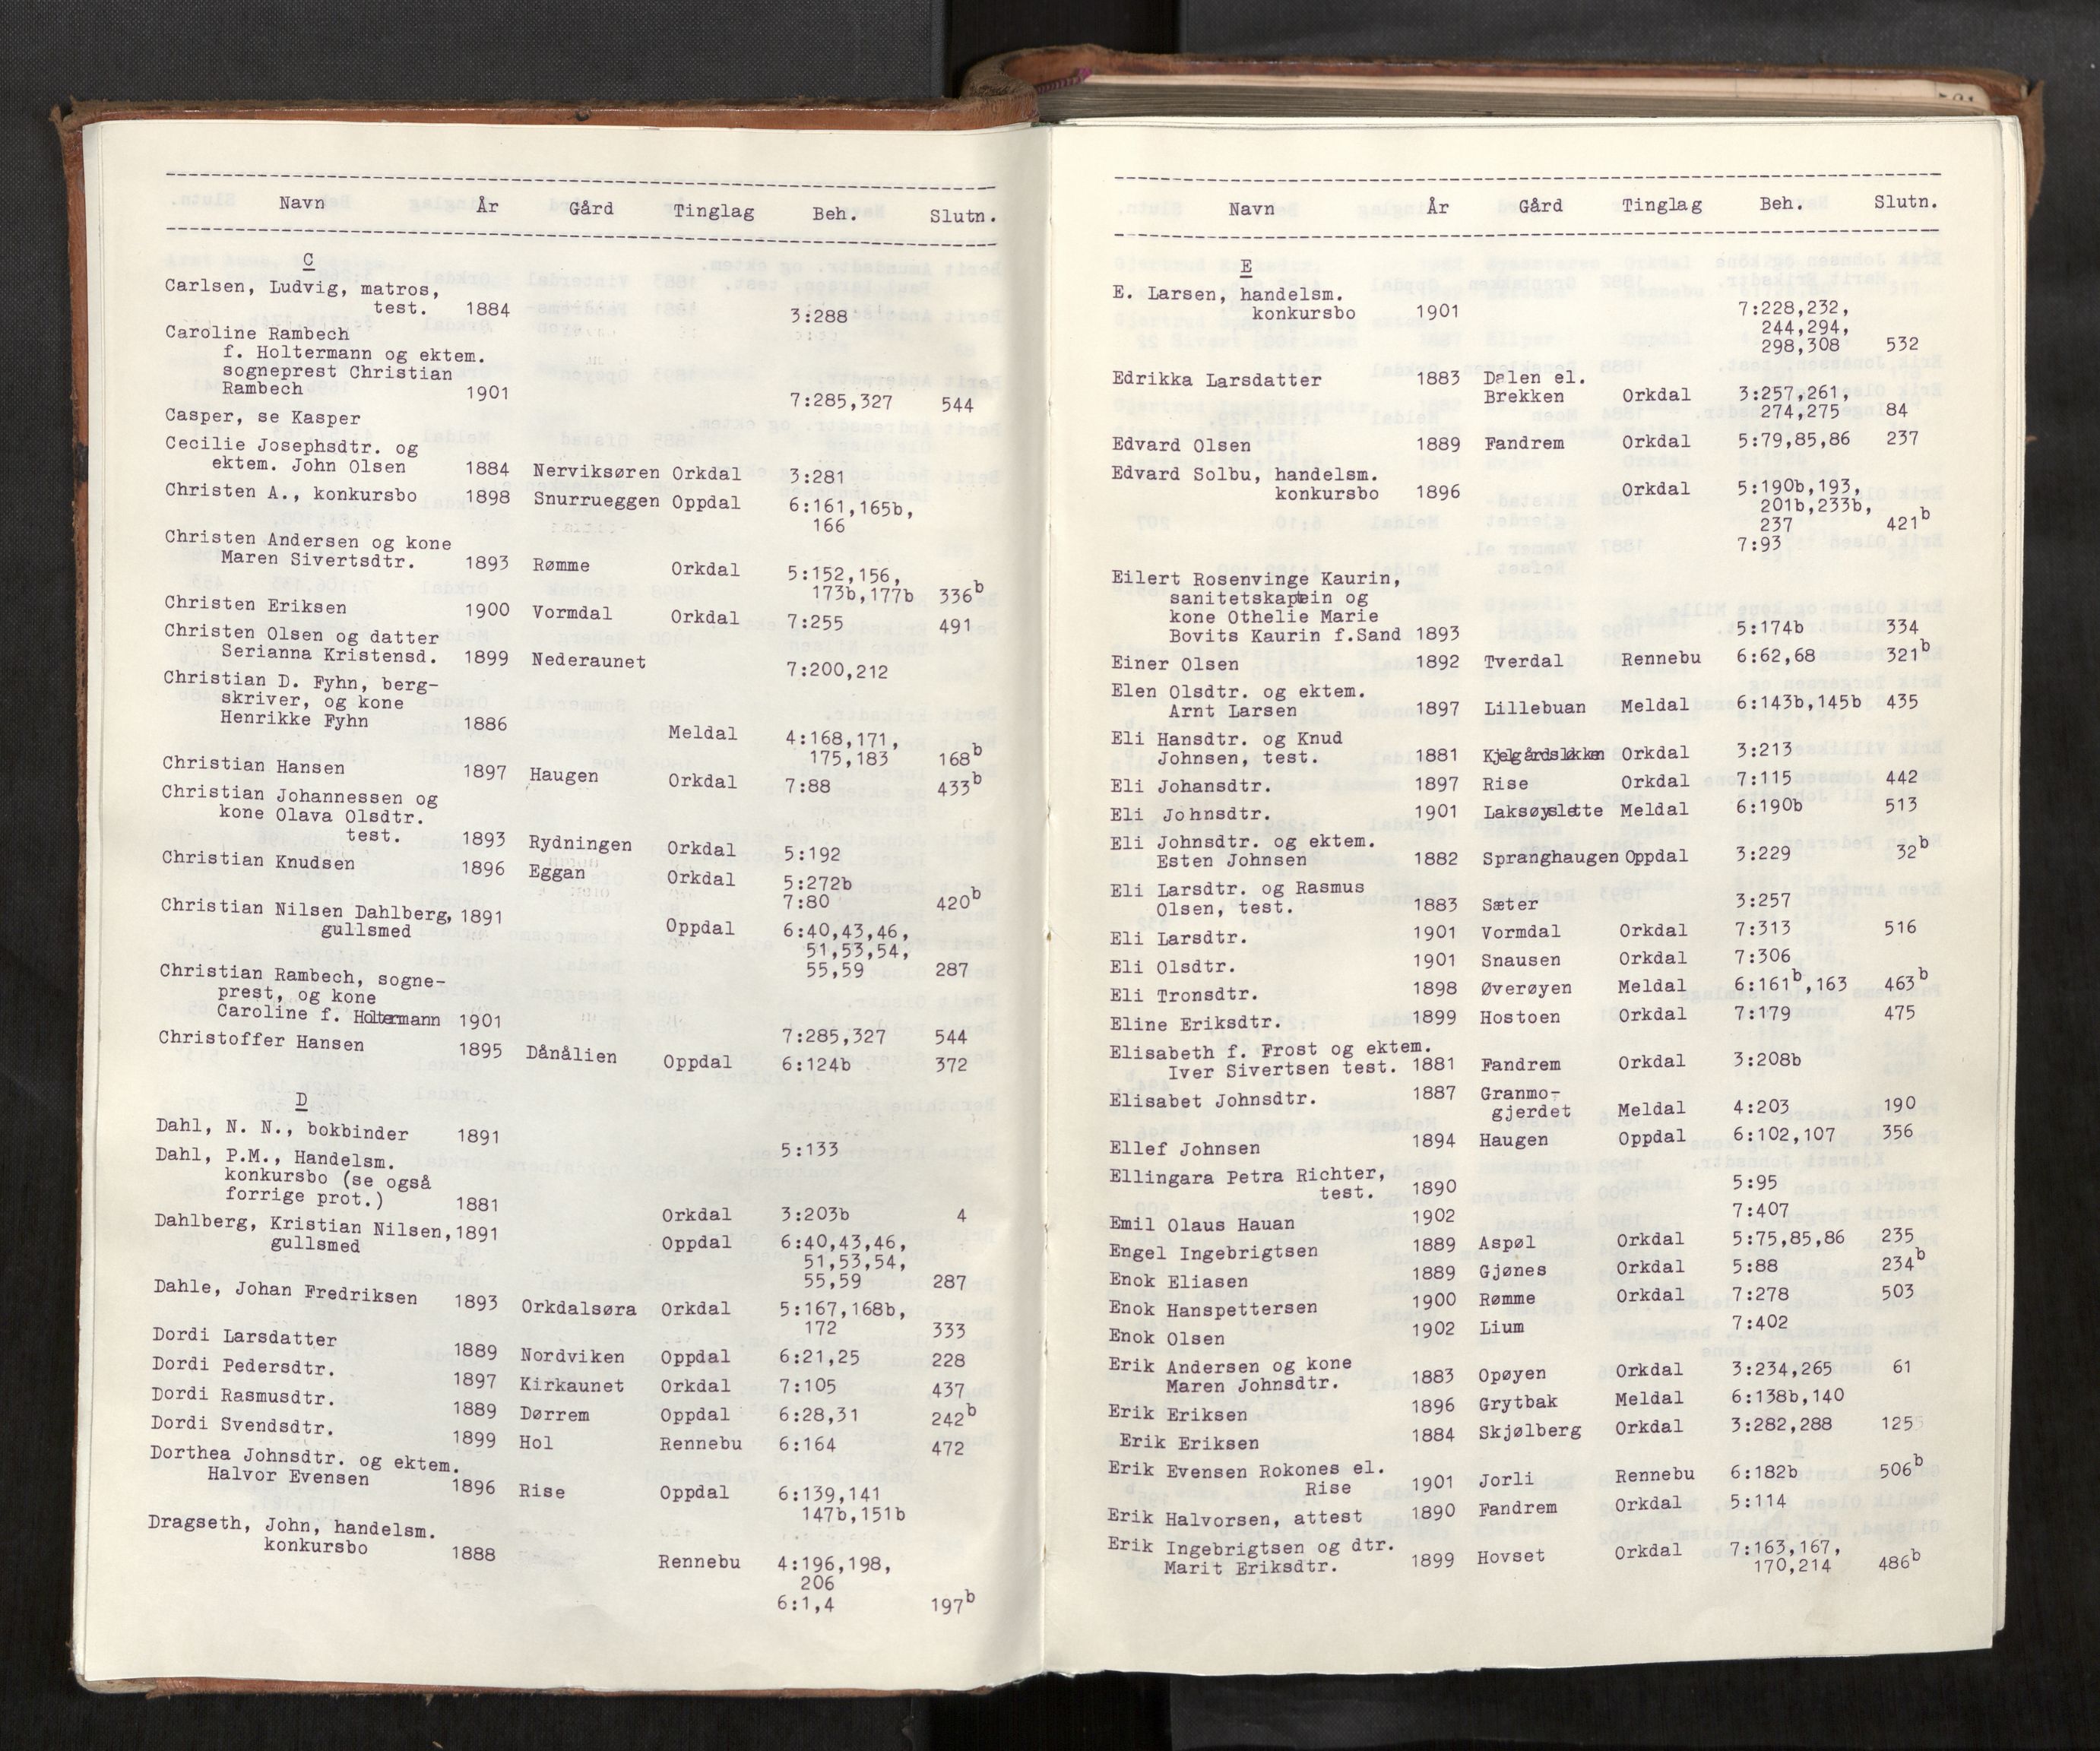 Navn År Gård Tinglag Beh. Slutn.
C
Carlsen, Ludvig, matros,
test. 1884 3:288
Caroline Rambech
f. Holtermann og ektem.
sogneprest Christian
Rambech 1901 7:285,327 544
Casper, se Kasper
Cecilie Josephsdtr. og
ektem. John Olsen 1884 Nerviksøren Orkdal 3:281
Christen A., konkursbo 1898 Snurrueggen Oppdal 6:161,165b,
166
Christen Andersen og kone
Maren Sivertsdtr. 1893 Rømme Orkdal 5:152,156,
173b,177b 336b
Christen Eriksen 1900 Vormdal Orkdal 7:255 491
Christen Olsen og datter
Serianna Kristensd. 1899 Nederaunet 7:200,212
Christian D. Fyhn, berg-
skriver, og kone
Henrikke Fyhn 1886 Meldal 4:168,171,
175,183 168b
Christian Hansen 1897 Haugen Orkdal 7:88 433b
Christian Johannessen og
kone Olava Olsdtr.
test. 1893 Rydningen Orkdal 5:192
Christian Knudsen 1896 Eggan Orkdal 5:272b
7:80 420b
Christian Nilsen Dahlberg, 1891 Oppdal 6:40,43,46,
gullsmed 51,53,54,
55,59 287
Christian Rambech, sogne-
prest, og kone
Caroline f. Holtermann 1901 7:285,327 544
Christoffer Hansen 1895 Dånålien Oppdal 6:124b 372
D
Dahl, N. N., bokbinder 1891 5:133
Dahl, P.M., Handelsm.
konkursbo (se også
forrige prot.) 1881 Orkdal 3:203b 4
Dahlberg, Kristian Nilsen, 1891 Oppdal 6:40,43,46,
gullsmed 51,53,54,
55,59 287
Dahle, Johan Fredriksen 1893 Orkdalsøra Orkdal 5:167,168b,
172 333
Dordi Larsdatter 1889 Nordviken Oppdal 6:21,25 228
Dordi Pedersdtr. 1897 Kirkaunet Orkdal 7:105 437
Dordi Rasmusdtr. 1889 Dørrem Oppdal 6:28,31 242b
Dordi Svendsdtr. 1899 Hol Rennebu 6:164 472
Dorthea Johnsdtr. og ektem.
Halvor Evensen 1896 Rise Oppdal 6:139,141
147b,151b
Dragseth, John, handelsm.
konkursbo 1888 Rennebu 4:196,198,
206
6:1,4 197b
Navn År Gård Tinglag Beh. Slutn.
E
E. Larsen, handelsm.
konkursbo 1901 7:228,232,
244,294,
298,308 532
Edrikka Larsdatter 1883 Dalen el.
Brekken Orkdal 3:257,261,
274,275 84
Edvard Olsen 1889 Fandrem Orkdal 5:79,85,86 237
Edvard Solbu, handelsm.
konkursbo 1896 Orkdal 5:190b,193,
201b,233b,
237 421b
7:93
Eilert Rosenvinge Kaurin,
sanitetskaptein og
kone Othelie Marie
Bovits Kaurin f.Sand 1893 5:174b 334
Einer Olsen 1892 Tverdal Rennebu 6:62,68 321b
Elen Olsdtr. og ektem.
Arnt Larsen 1897 Lillebuan Meldal 6:143b,145b 435
Eli Hansdtr. og Knud
Johnsen, test. 1881 Kjelgårdsløkken Orkdal 3:213
Eli Johansdtr. 1897 Rise Orkdal 7:115 442
Eli Johnsdtr. 1901 Laksøyslette Meldal 6:190b 513
Eli Johnsdtr. og ektem.
Esten Johnsen 1882 Spranghaugen Oppdal 3:229 32b
Eli Larsdtr. og Rasmus
Olsen, test. 1883 Sæter 3:257
Eli Larsdtr. 1901 Vormdal Orkdal 7:313 516
Eli Olsdtr. 1901 Snausen Orkdal 7:306
Eli Tronsdtr. 1898 Øverøyen Meldal 6:161b,163 463b
Eline Eriksdtr. 1899 Hostoen Orkdal 7:179 475
Elisabeth f. Frost og ektem.
Iver Sivertsen test. 1881 Fandrem Orkdal 3:208b
Elisabet Johnsdtr. 1887 Granmo-
gjerdet Meldal 4:203 190
Ellef Johnsen 1894 Haugen Oppdal 6:102,107 356
Ellingara Petra Richter,
test. 1890 5:95
Emil Olaus Hauan 1902 7:407
Engel Ingebrigtsen 1889 Aspøl Orkdal 5:75,85,86 235
Enok Eliasen 1889 Gjønes Orkdal 5:88 234b
Enok Hanspettersen 1900 Rømme Orkdal 7:278 503
Enok Olsen 1902 Lium 7:402
Erik Andersen og kone
Maren Johnsdtr. 1883 Opøyen Orkdal 3:234,265 61
Erik Eriksen 1896 Grytbak Meldal 6:138b,140
Erik Eriksen 1884 Skjølberg Orkdal 3:282,288 125
Erik Evensen Rokones el.
Rise 1901 Jorli Rennebu 6:182b 506b
Erik Halvorsen, attest 1890 Fandrem Orkdal 5:114
Erik Ingebrigtsen og dtr.
Marit Eriksdtr. 1899 Hovset Orkdal 7:163,167,
170,214 486b